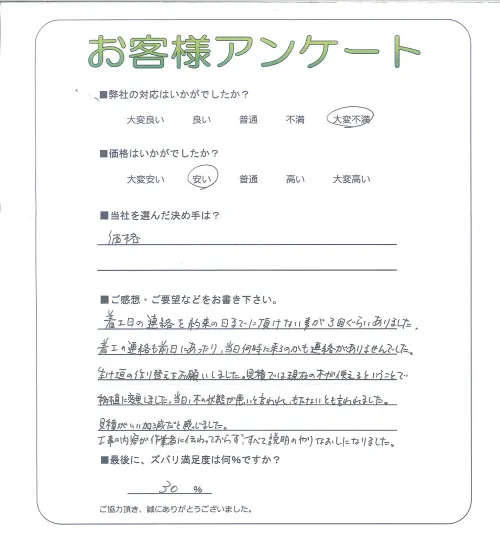 お客様アンケート
■弊社の対応はいかがでしたか？
大変良い 良い 普通 不満 大変不満
■価格はいかがでしたか？
大変安い 安い 普通 高い 大変高い
■当社を選んだ決め手は？
価格
■ご感想・ご要望などをお書き下さい。
着工日の連絡を約束の日までに頂けない事が3回ぐらいありました。
着工の連絡も前日にあったり、当日何時に来るのかも連絡がありませんでした。
生け垣の作り替えをお願いしました。見積では現在の木が使えるということで
移植に変更しました。当日、木の状態が悪いと言われ、もたないとも言われました。
見積がいい加減だと感じました。
工事の内容が作業者に伝わっておらず、すべて説明のやりなおしになりました。
■最後に、ズバリ満足度は何％ですか？
30 ％
ご協力頂き、誠にありがとうございました。